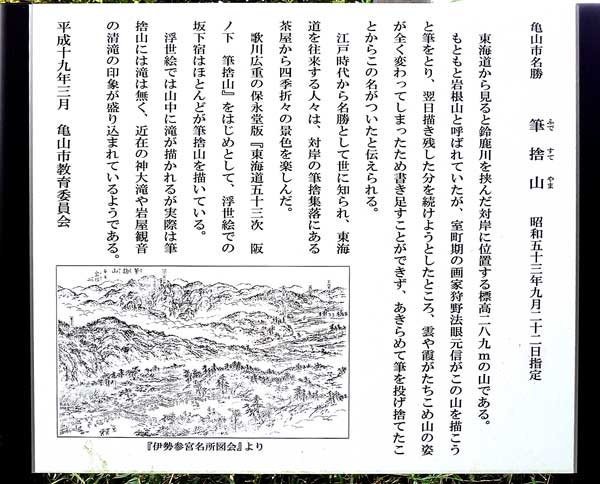 亀山市名勝　筆捨山　昭和五十三年九月二十二日指定
ふで　すて　やま
東海道から見ると鈴鹿川を挟んだ対岸に位置する標高二八九ｍの山である。
もともと岩根山と呼ばれていたが、室町期の画家狩野法眼元信がこの山を描こう
と筆をとり、翌日描き残した分を続けようとしたところ、雲や霞がたちこめ山の姿
が全く変わってしまったため書き足すことができず、あきらめて筆を投げ捨てたこ
とからこの名がついたと伝えられる。
江戸時代から名勝として世に知られ、東海
道を往来する人々は、対岸の筆捨集落にある
茶屋から四季折々の景色を楽しんだ。
歌川広重の保永堂版『東海道五十三次　阪
ノ下　筆捨山』をはじめとして、浮世絵での
坂下宿はほとんどが筆捨山を描いている。
浮世絵では山中に滝が描かれるが実際は筆
捨山には滝は無く、近在の神大滝や岩屋観音
の清滝の印象が盛り込まれているようである。
平成十九年三月　亀山市教育委員会
『伊勢参宮名所図会』より